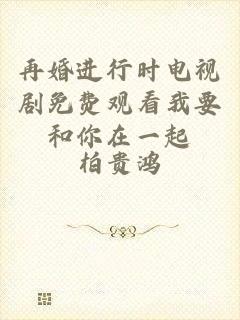 再婚进行时电视
剧免费观看我要
和你在一起
柏贵鸿